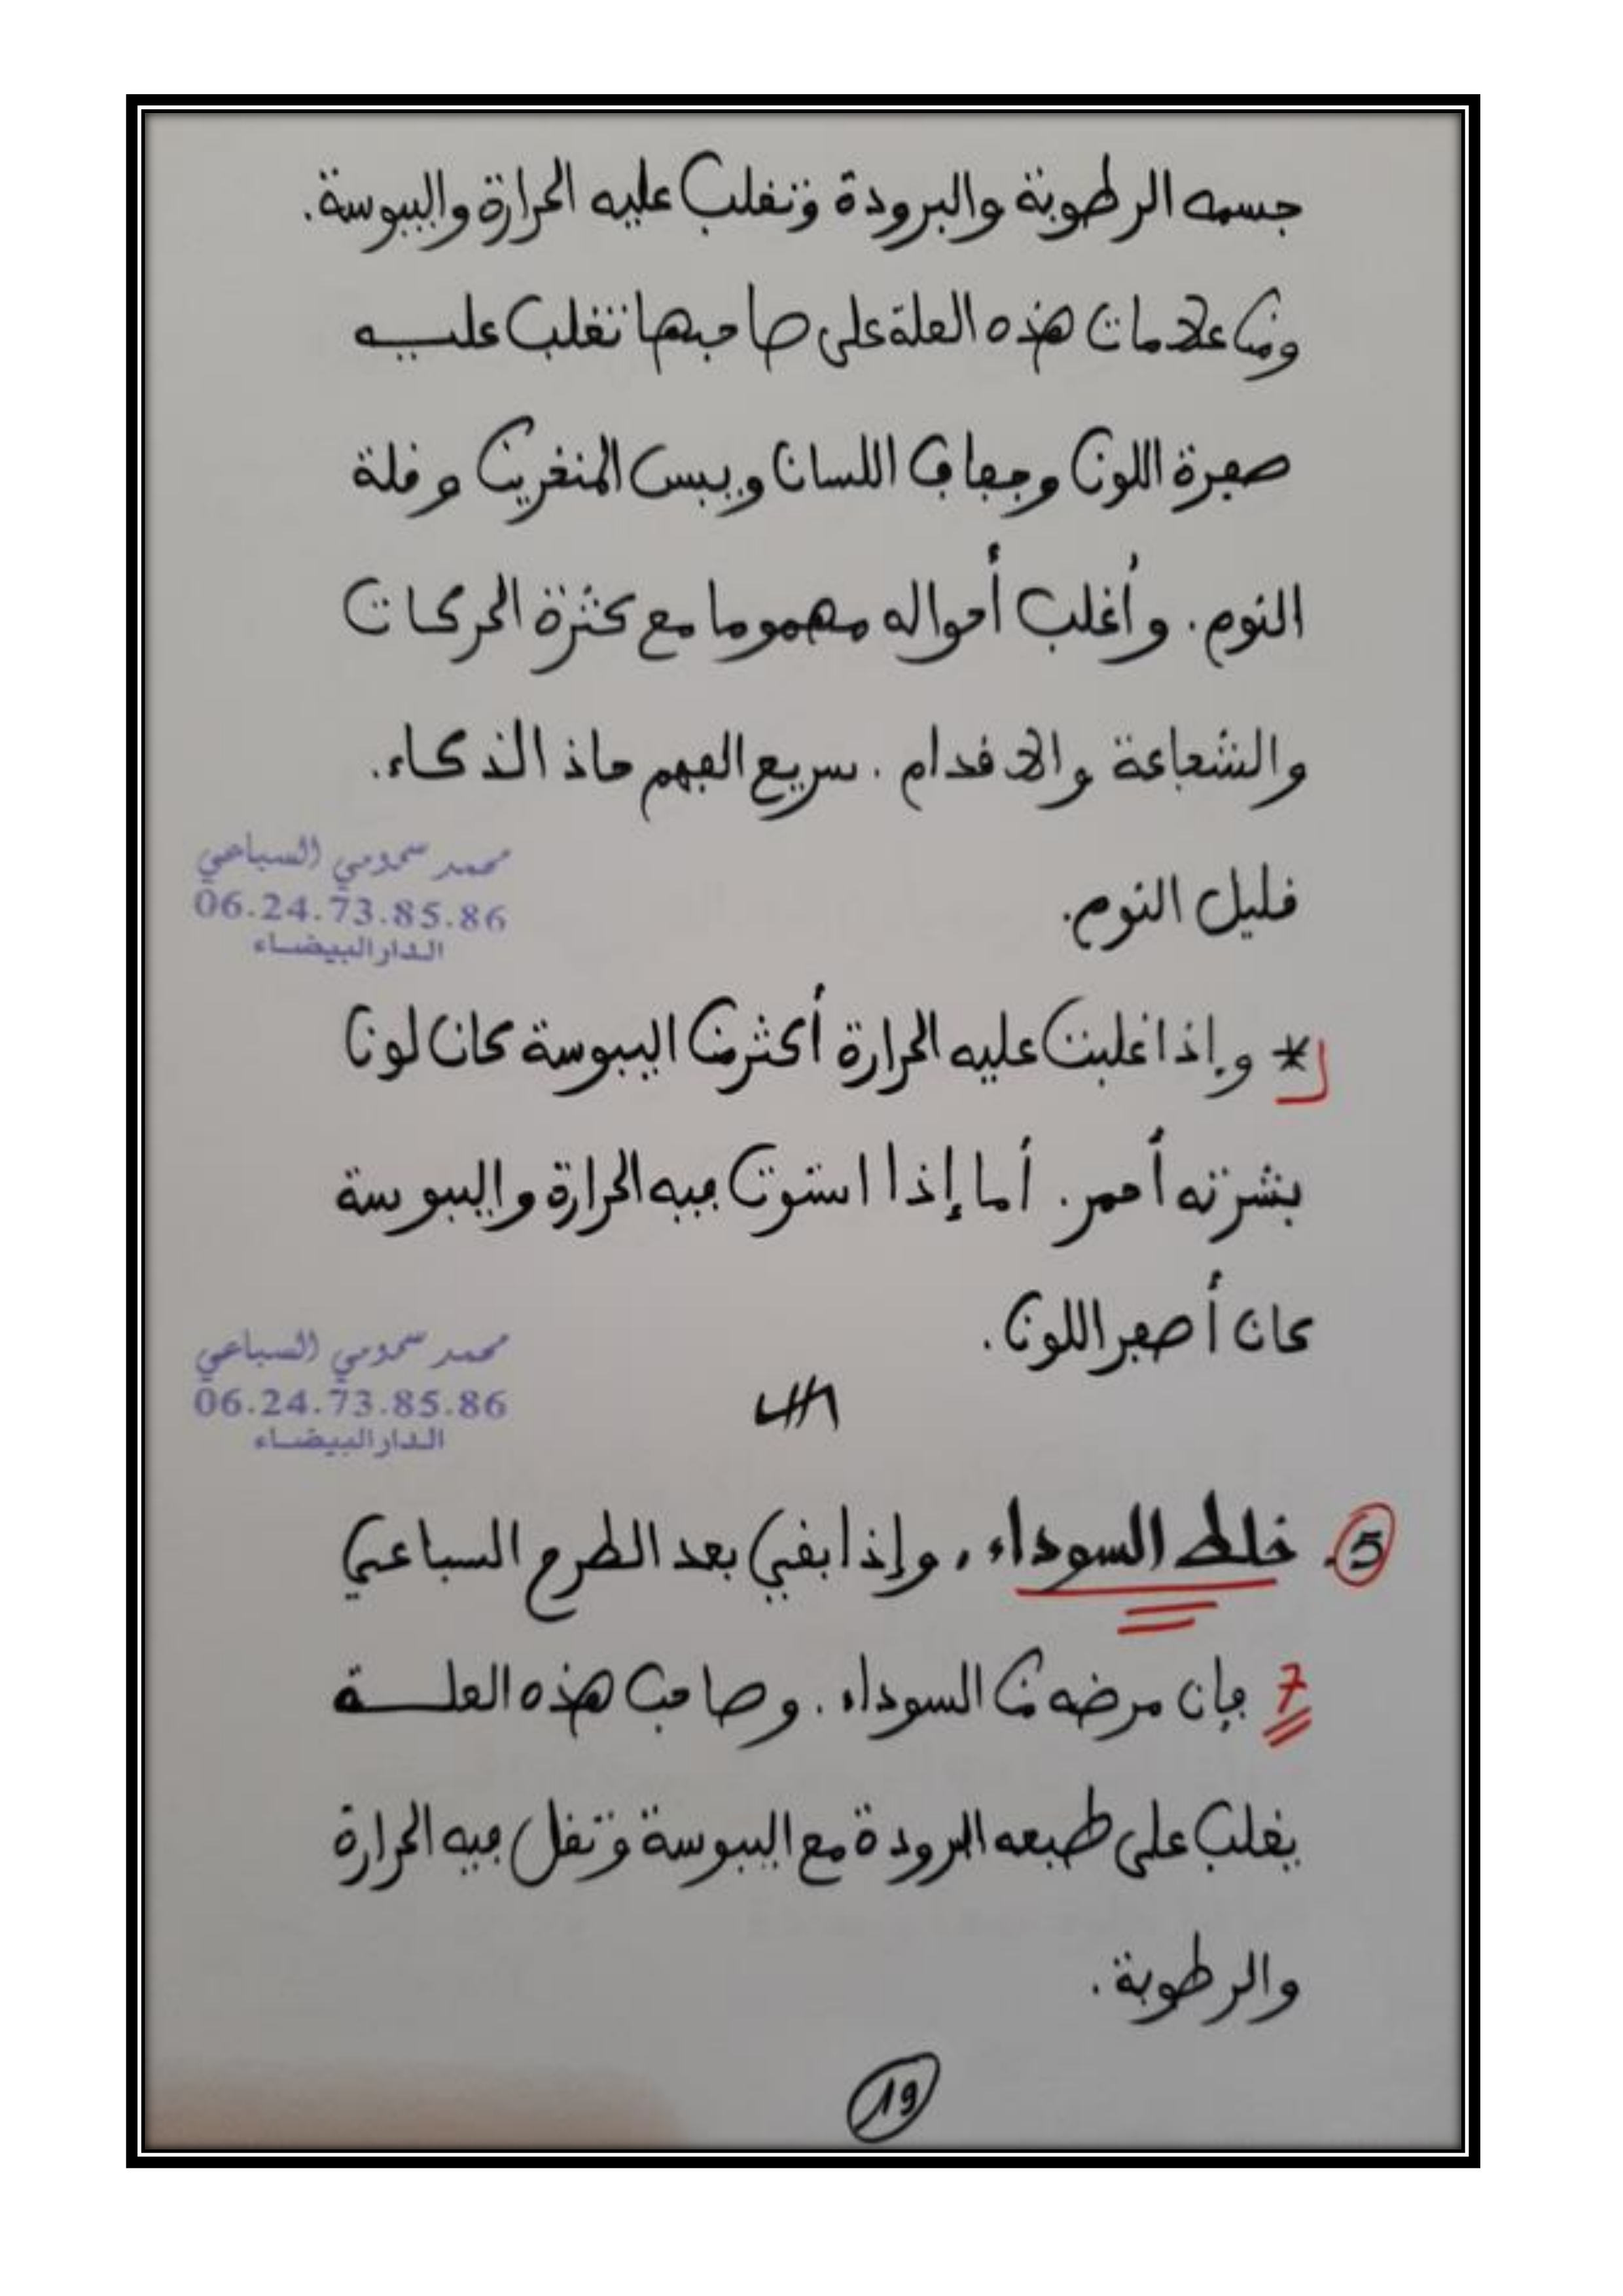 جسمه الرطوبة والبرودة وتغلب عليه الحرارة واليبوسة.
ومن علامات هذه العلة على صاحبها تغلب عليه
صفرة اللون وجفاف اللسان ويبس المنخرين وقلة
النوم. وأغلب أحواله مهموما مع كثرة الحركات
والشجاعة والاقدام. سريع الفهم حاذ الذكاء.
محمد سحومي السباعي
06.24.73.85.86
الدار البيضاء
قليل النوم.
* وإذا غلبت عليه الحرارة أكثر من اليبوسة كان لون
بشرته أحمر. أما إذا استوت فيه الحرارة واليبوسة
كان أصفر اللون.
محمد سحومي السباعي
06.24.73.85.86
الدار البيضاء
5. خلط السوداء، وإذا بقي بعد الطرح السباعي
7 فإن مرضه من السوداء. وصاحب هذه العلة
يغلب على طبعه البرودة مع اليبوسة وتقل فيه الحرارة
والرطوبة.
19